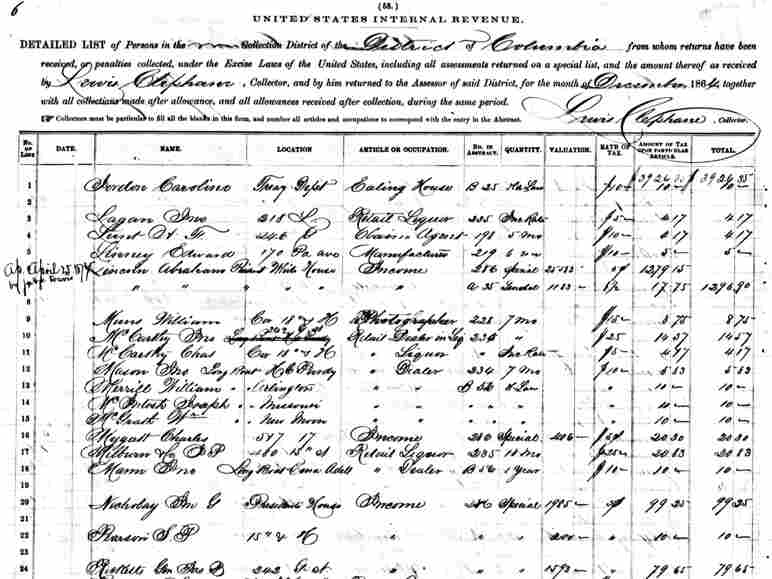 6
(58.)
UNITED STATES INTERNAL REVENUE.
DETAILED LIST of Persons in the Collection District of the District of Columbia from whom returns have been
received, or penalties collected, under the Excise Laws of the United States, including all assessments returned on a special list, and the amount thereof as received
by Lewis Clephane, Collector, and by him returned to the Assessor of said District, for the month of December 1864, together
with all collections made after allowance, and all allowances received after collection, during the same period.
☞ Collectors must be particular to fill all the blanks in this form, and number all articles and occupations to correspond with the entry in the Abstract.
Lewis Clephane, Collector.
No. of Line DATE. NAME. LOCATION ARTICLE OR OCCUPATION. No. in Abstract. QUANTITY. VALUATION. RATE OF TAX. AMOUNT OF TAX UPON PARTICULAR ARTICLE. TOTAL.
$3926.35 $3926.35
1 Jordon Caroline Treas Dept Eating House B 25 $10 10 10
2
3 Fagan Jno 218 L Retail Liquor 235 $5 4 17 4 17
4 246 Claim Agent 198 5 Mo $10 4 17 4 17
5 Kinney Edward 170 Pa ave Manufacturer 219 5 5
6 Lincoln Abraham Presidt White House Income 286 Special 25 583 1279 15
" " " " " A 35 17 75 1296 90
8
9 William Cor 18 & H Photographer 228 7 Mo $15 8 75 8 75
10 McCarthy Jno Retail Dealer in Liq 235 " $25 14 57 14 57
11 McCarthy Chas Cor 18 & H " Liquor " $5 4 17 4 17
12 Mason Jno Long Boat H C Purdy " Dealer 234 7 Mo $10 5 83 5 83
13 Merrill William " Arlington " " B 56 " 10 10
14 McIntosh Joseph " Missouri " " " " " 10 10
15 McGrath Wm " New Moon " " " " " 10 10
16 Mygatt Charles 517 17 Income Special 406 20 30 20 30
17 Milburn & Co J P 460 15th st Retail Liquor 235 10 Mo $25 20 83 20 83
18 Mann Jno Long Boat " Dealer B 56 1 Year $10 10 10
19
20 Nicolay Jno G Presidents House Income 286 Special 1985 99 25 99 25
21
22 Pearson S P 15th & H " " " 200 " 10 10
23
24 Ricketts Gen Jas B 242 G st " " " 1593 " 79 65 79 65